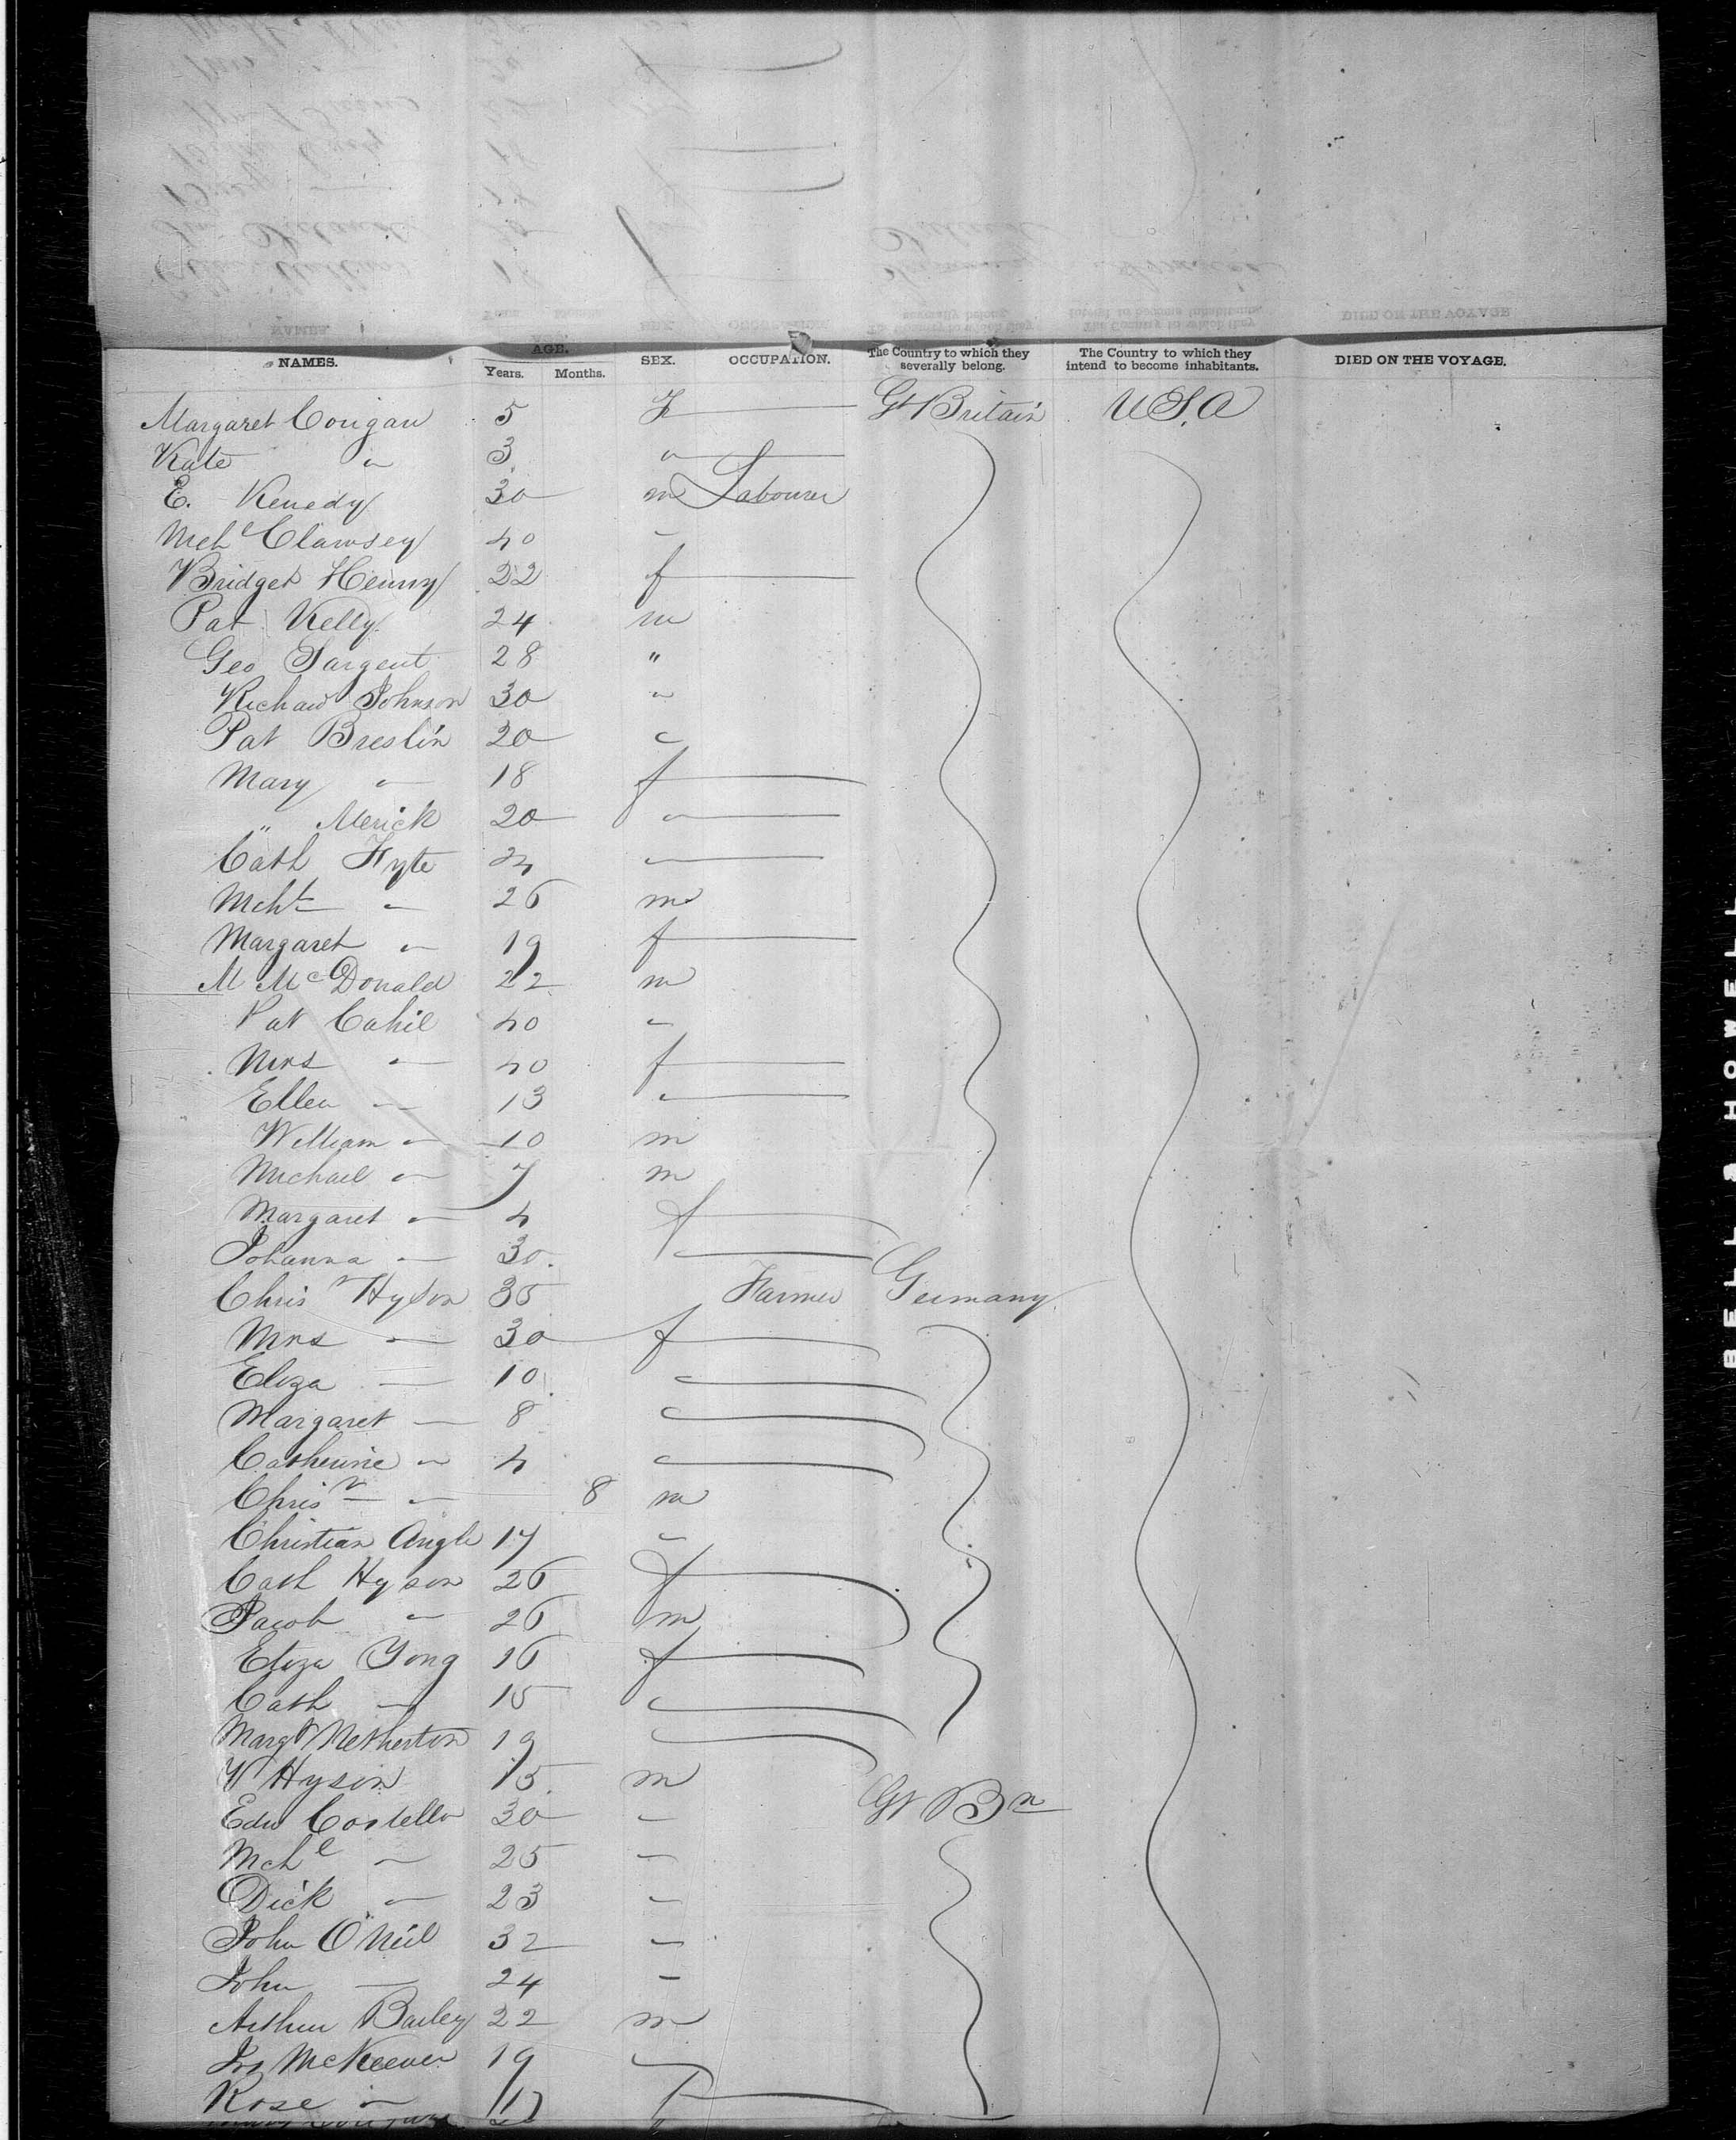 NAMES. AGE. Years. Months. SEX. OCCUPATION. The Country to which they severally belong. The Country to which they intend to become inhabitants. DIED ON THE VOYAGE.
Margaret Corigan 5 F Gt Britain U.S.A
Kate " 3 "
E. Kenedy 30 m Labourer
Mchl Clawsey 40 "
Bridget Henny 22 f
Pat Kelly 24 m
Geo Sargent 28 "
Richard Johnson 30 "
Pat Breslin 20 "
Mary " 18 f
" Merick 20 "
Cath Fyte 24 "
Mchl " 26 m
Margaret " 19 f
M McDonald 22 m
Pat Cahil 40 "
Mrs " 40 f
Ellen " 13 "
William " 10 m
Michael " 7 m
Margaret " 4 f
Johanna " 30 "
Chrisn Hyson 35 Farmer Germany
Mrs " 30 f
Eliza " 10 "
Margaret " 8 "
Catherine " 4 "
Chrisn " 8 m
Christian Angle 17 "
Cath Hyson 26 f
Jacob " 26 m
Eliza Yong 16 f
Cath " 15 "
Margt Netherton 19 "
Hyson 15 m
Edw Costello 30 " Gt Bn
Mchl " 25 "
Dick " 23 "
John O'Neil 32 "
John " 24 "
Arthur Barley 22 m
Jas McKeever 19 "
Rose " 17 f
BELL & HOWELL